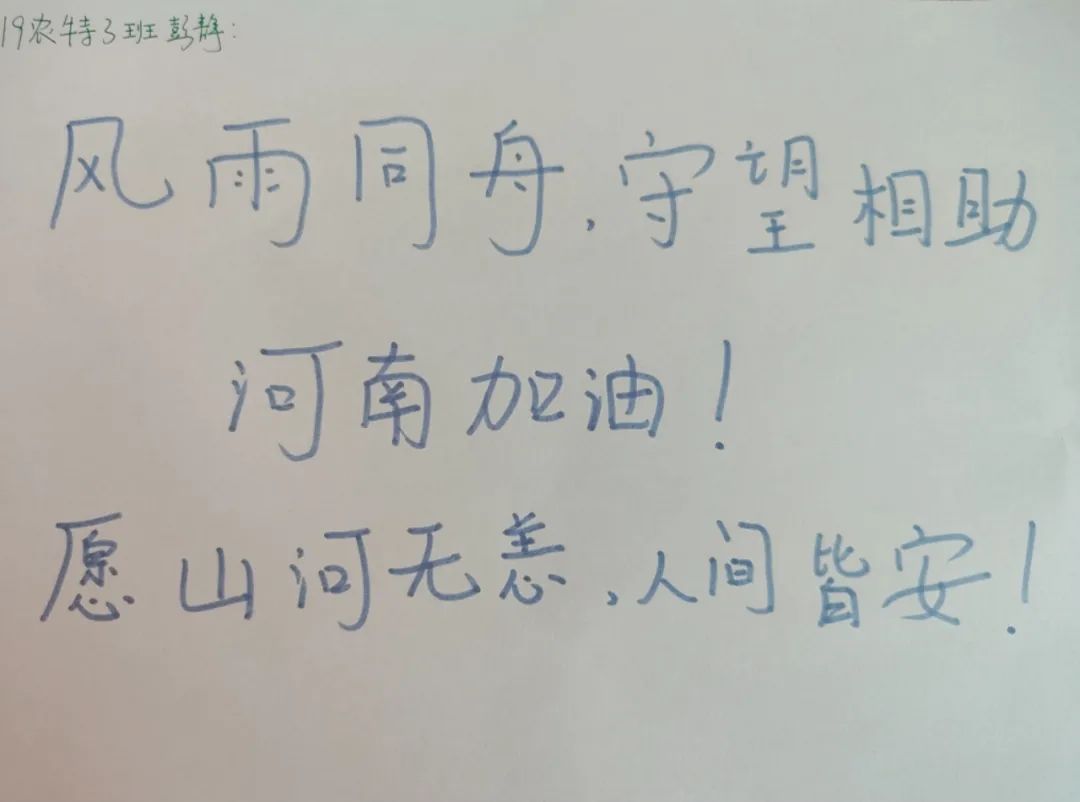 19农特3班彭静:
风雨同舟,守望相助
河南加油!
愿山河无恙,人间皆安!